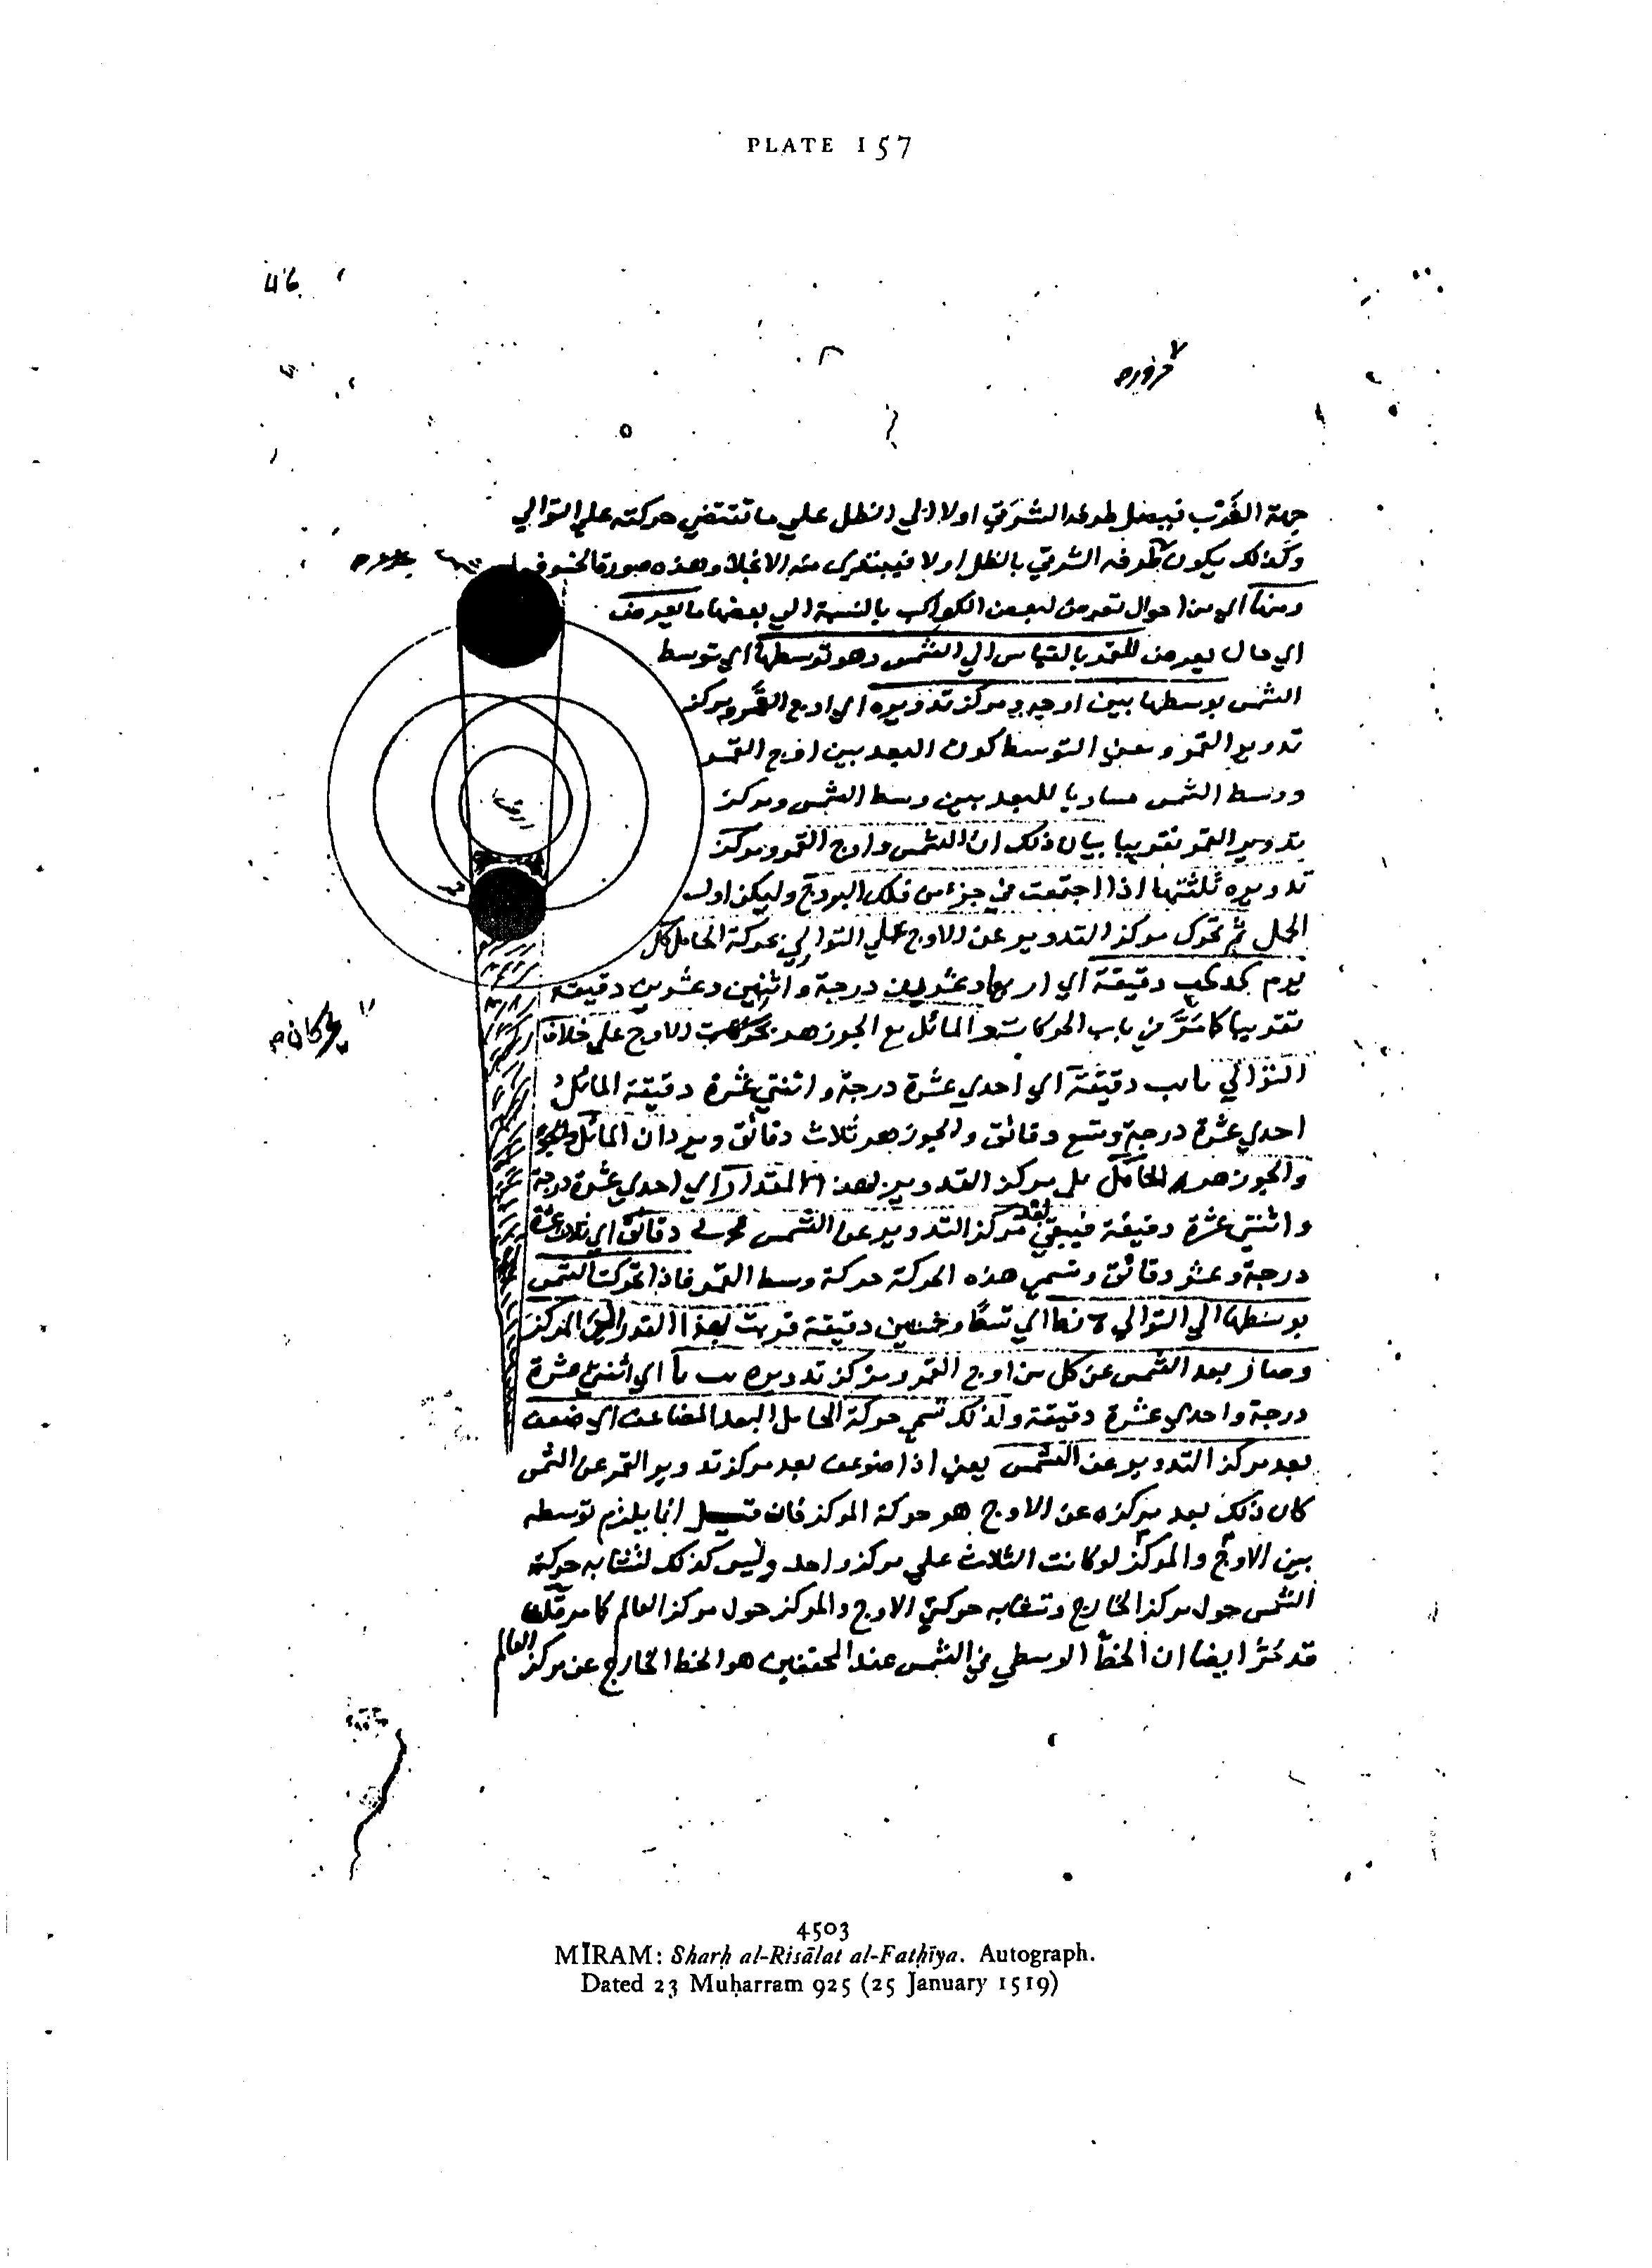 PLATE 157
46
جهة الغرب فيصل طرفه الشرقي اولا الي الظل علي ما تقتضي حركته علي التوالي
وكذلك يكون طرفه الشرقي بالظل اولا فيبتدي منه الانجلا وهذه صورة الخسوف
ومنها اي من احوال تعرض لبعض الكواكب بالنسبة الي بعضها ما يعرض
اي حال يعرض للقمر بالقياس الي الشمس وهو توسطها اي توسط
الشمس بوسطها بين اوجه و مركز تدويره اي اوج القمر ومركز
تدوير القمر ومعني التوسط كون البعد بين اوج القمر
ووسط الشمس مساويا للبعد بين وسط الشمس ومركز
تدوير القمر تقريبا بيان ذلك ان الشمس واوج القمر ومركز
تدويره ثلثتها اذا اجتمعت في جزء من فلك البروج وليكن اول
الحمل ثم تحرك مركز التدوير عن الاوج علي التوالي بحركة الحامل كل
يوم كد كب دقيقة اي اربعا وعشرين درجة واثنين وعشرين دقيقة
تقريبا كما مر في باب الحركات و المائل مع الجوزهر الاوج علي خلاف
التوالي يا يب دقيقة اي احدي عشرة درجة واثنتي عشرة دقيقة المائل
احدي عشرة درجة وتسع دقائق والجوزهر ثلاث دقائق و المائل
والجوزهر الحامل مركز التدوير بهذا المقدار اي احدي عشرة درجة
واثنتي عشرة دقيقة فيبقي بعد مركز التدوير عن الشمس دقائق اي ثلاث عشرة
درجة وعشر دقائق وتسمي هذه الحركة حركة وسط القمر فاذا تحركت الشمس
بوسطها الي التوالي نط اي تسعا وخمسين دقيقة قربت بهذا القدر الي المركز
وصار بعد الشمس عن كل من اوج القمر ومركز تدويره يب يا اي اثنتي عشرة
درجة واحدي عشرة دقيقة ولذلك تسمي حركة الحامل البعد المضاعف اي ضعف
بعد مركز التدوير عن الشمس يعني اذا ضوعف بعد مركز تدوير القمر عن الشمس
كان ذلك بعد مركزه عن الاوج هو حركة المركز فان قيل انما يلزم توسطه
بين الاوج والمركز لو كانت الثلاث علي مركز واحد وليس كذلك لتشابه حركة
الشمس حول مركز الخارج وتشابه حركتي الاوج والمركز حول مركز العالم كما مر قلت
قد مر ايضا ان الخط الوسطي في الشمس عند المحققين هو الخط الخارج عن مركز العالم
4503
MĪRAM: Sharḥ al-Risālat al-Fatḥīya. Autograph.
Dated 23 Muḥarram 925 (25 January 1519)